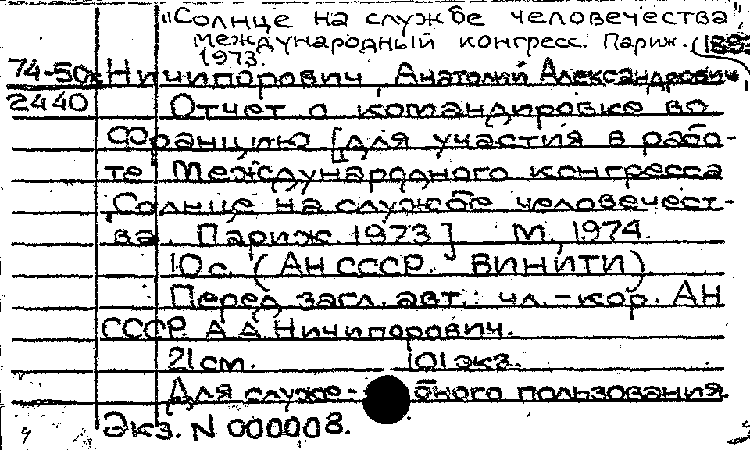 "Солнце на службе человечества",
международный конгресс. Париж.
1973.
74-50к Ничипорович, Анатолий Александрович,
2440 Отчет о командировке во
Францию [для участия в рабо-
те Международного конгресса
"Солнце на службе человечест-
ва". Париж. 1973]. М., 1974.
10 с. (АН СССР. ВИНИТИ).
Перед загл. авт.: чл.-кор. АН
СССР А.А. Ничипорович.
21 см. 101 экз.
Для служебного пользования.
Экз. N 000008.